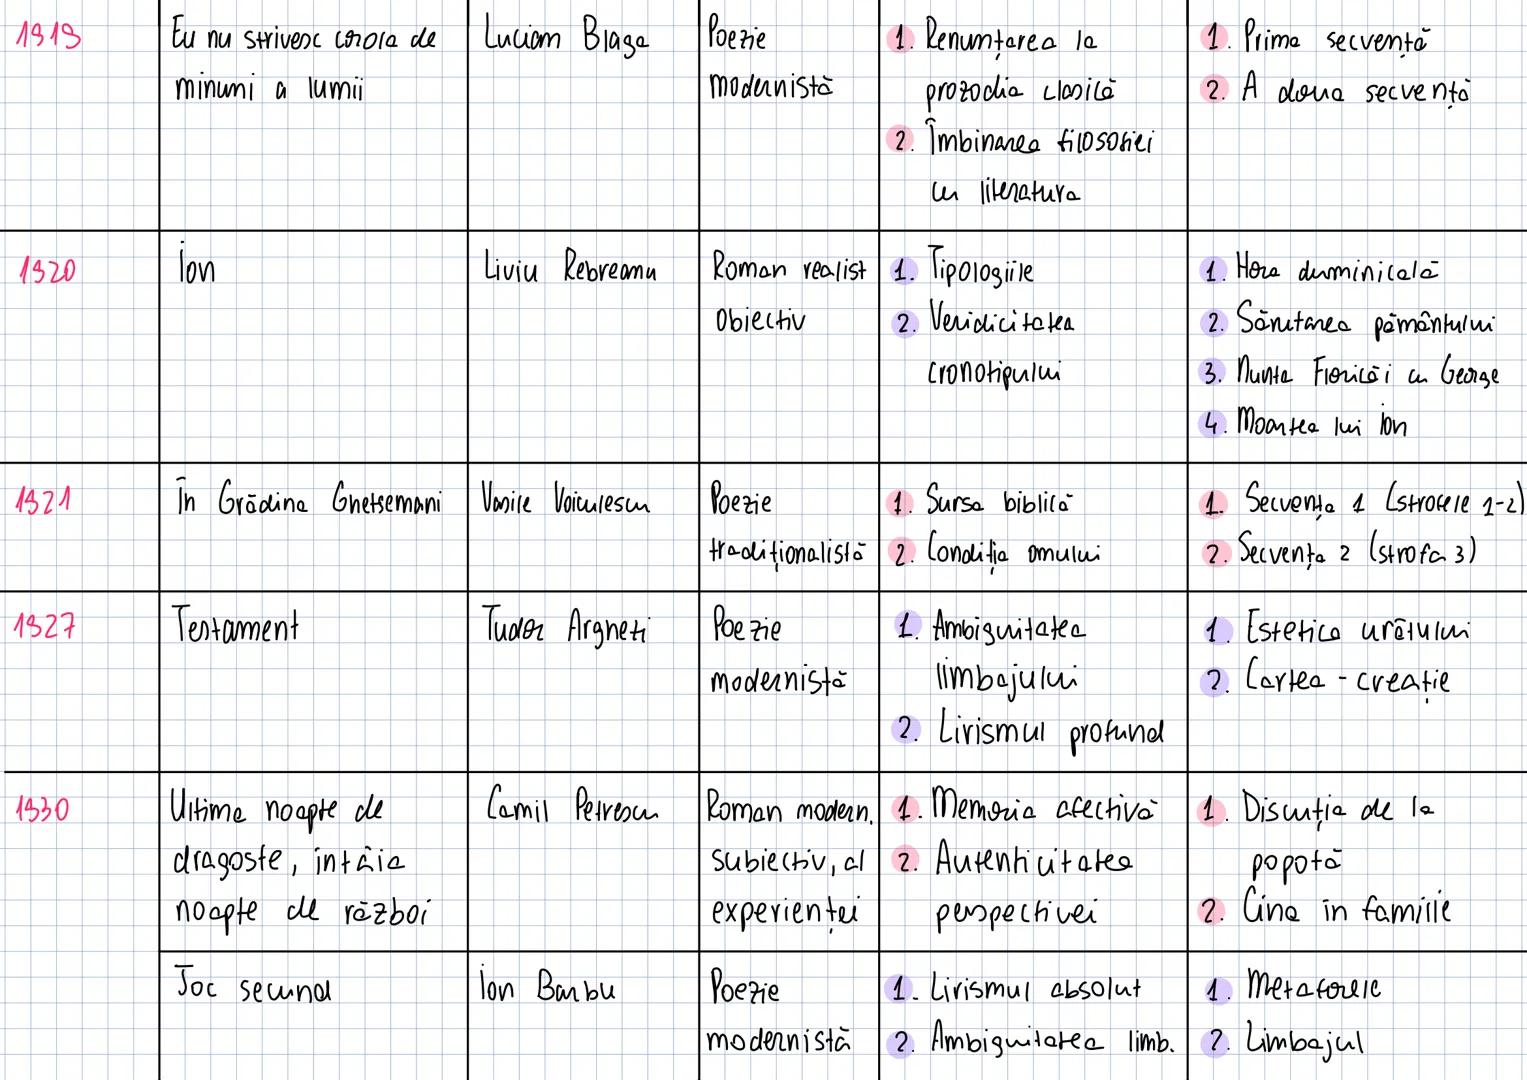 1919
Eu nu strivesc corola de
minuni a lumii
Lucian Blaga
Poezie
modernistă
1. Renunțarea la
prozodia clasică
2. Îmbinarea filosofiei
cu literatura
1. Prima secvență
2. A doua secvență
1920
Ion
Liviu Rebreanu
Roman realist
obiectiv
1. Tipologiile
2. Veridicitatea
cronotipului
1. Hora duminicală
2. Sărutarea pământului
3. Nunta Floricăi cu George
4. Moartea lui Ion
1921
În Grădina Ghetsemani
Vasile Voiculescu
Poezie
tradiționalistă
1. Sursa biblică
2. Condiția omului
1. Secvența 1 (strofele 1-2)
2. Secvența 2 (strofa 3)
1927
Testament
Tudor Arghezi
Poezie
modernistă
1. Ambiguitatea
limbajului
2. Lirismul profund
1. Estetica urâtului
2. Cartea - creație
1930
Ultima noapte de
dragoste, întâia
noapte de război
Camil Petrescu
Roman modern.
subiectiv, al
experienței
1. Memoria afectivă
2. Autenticitatea
perspectivei
1. Discuția de la
popotă
2. Cina în familie
Joc secund
Ion Barbu
Poezie
modernistă
1. Lirismul absolut
2. Ambiguitatea limb.
1. Metaforele
2. Limbajul